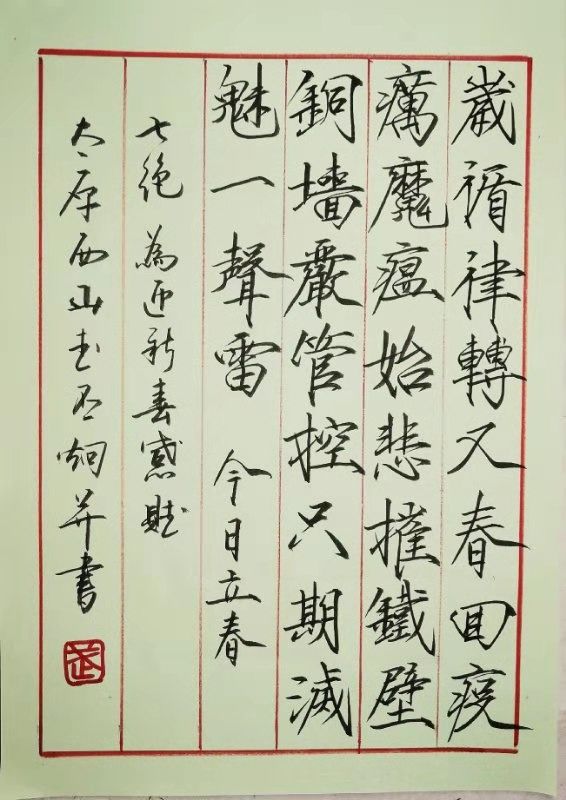 歲循律轉又春回疫
癘魔瘟始悲摧鐵壁
銅墻嚴管控只期滅
魅一聲雷 今日立春
七絶 為迎新春感賦
太原西山武丕炯并書
武